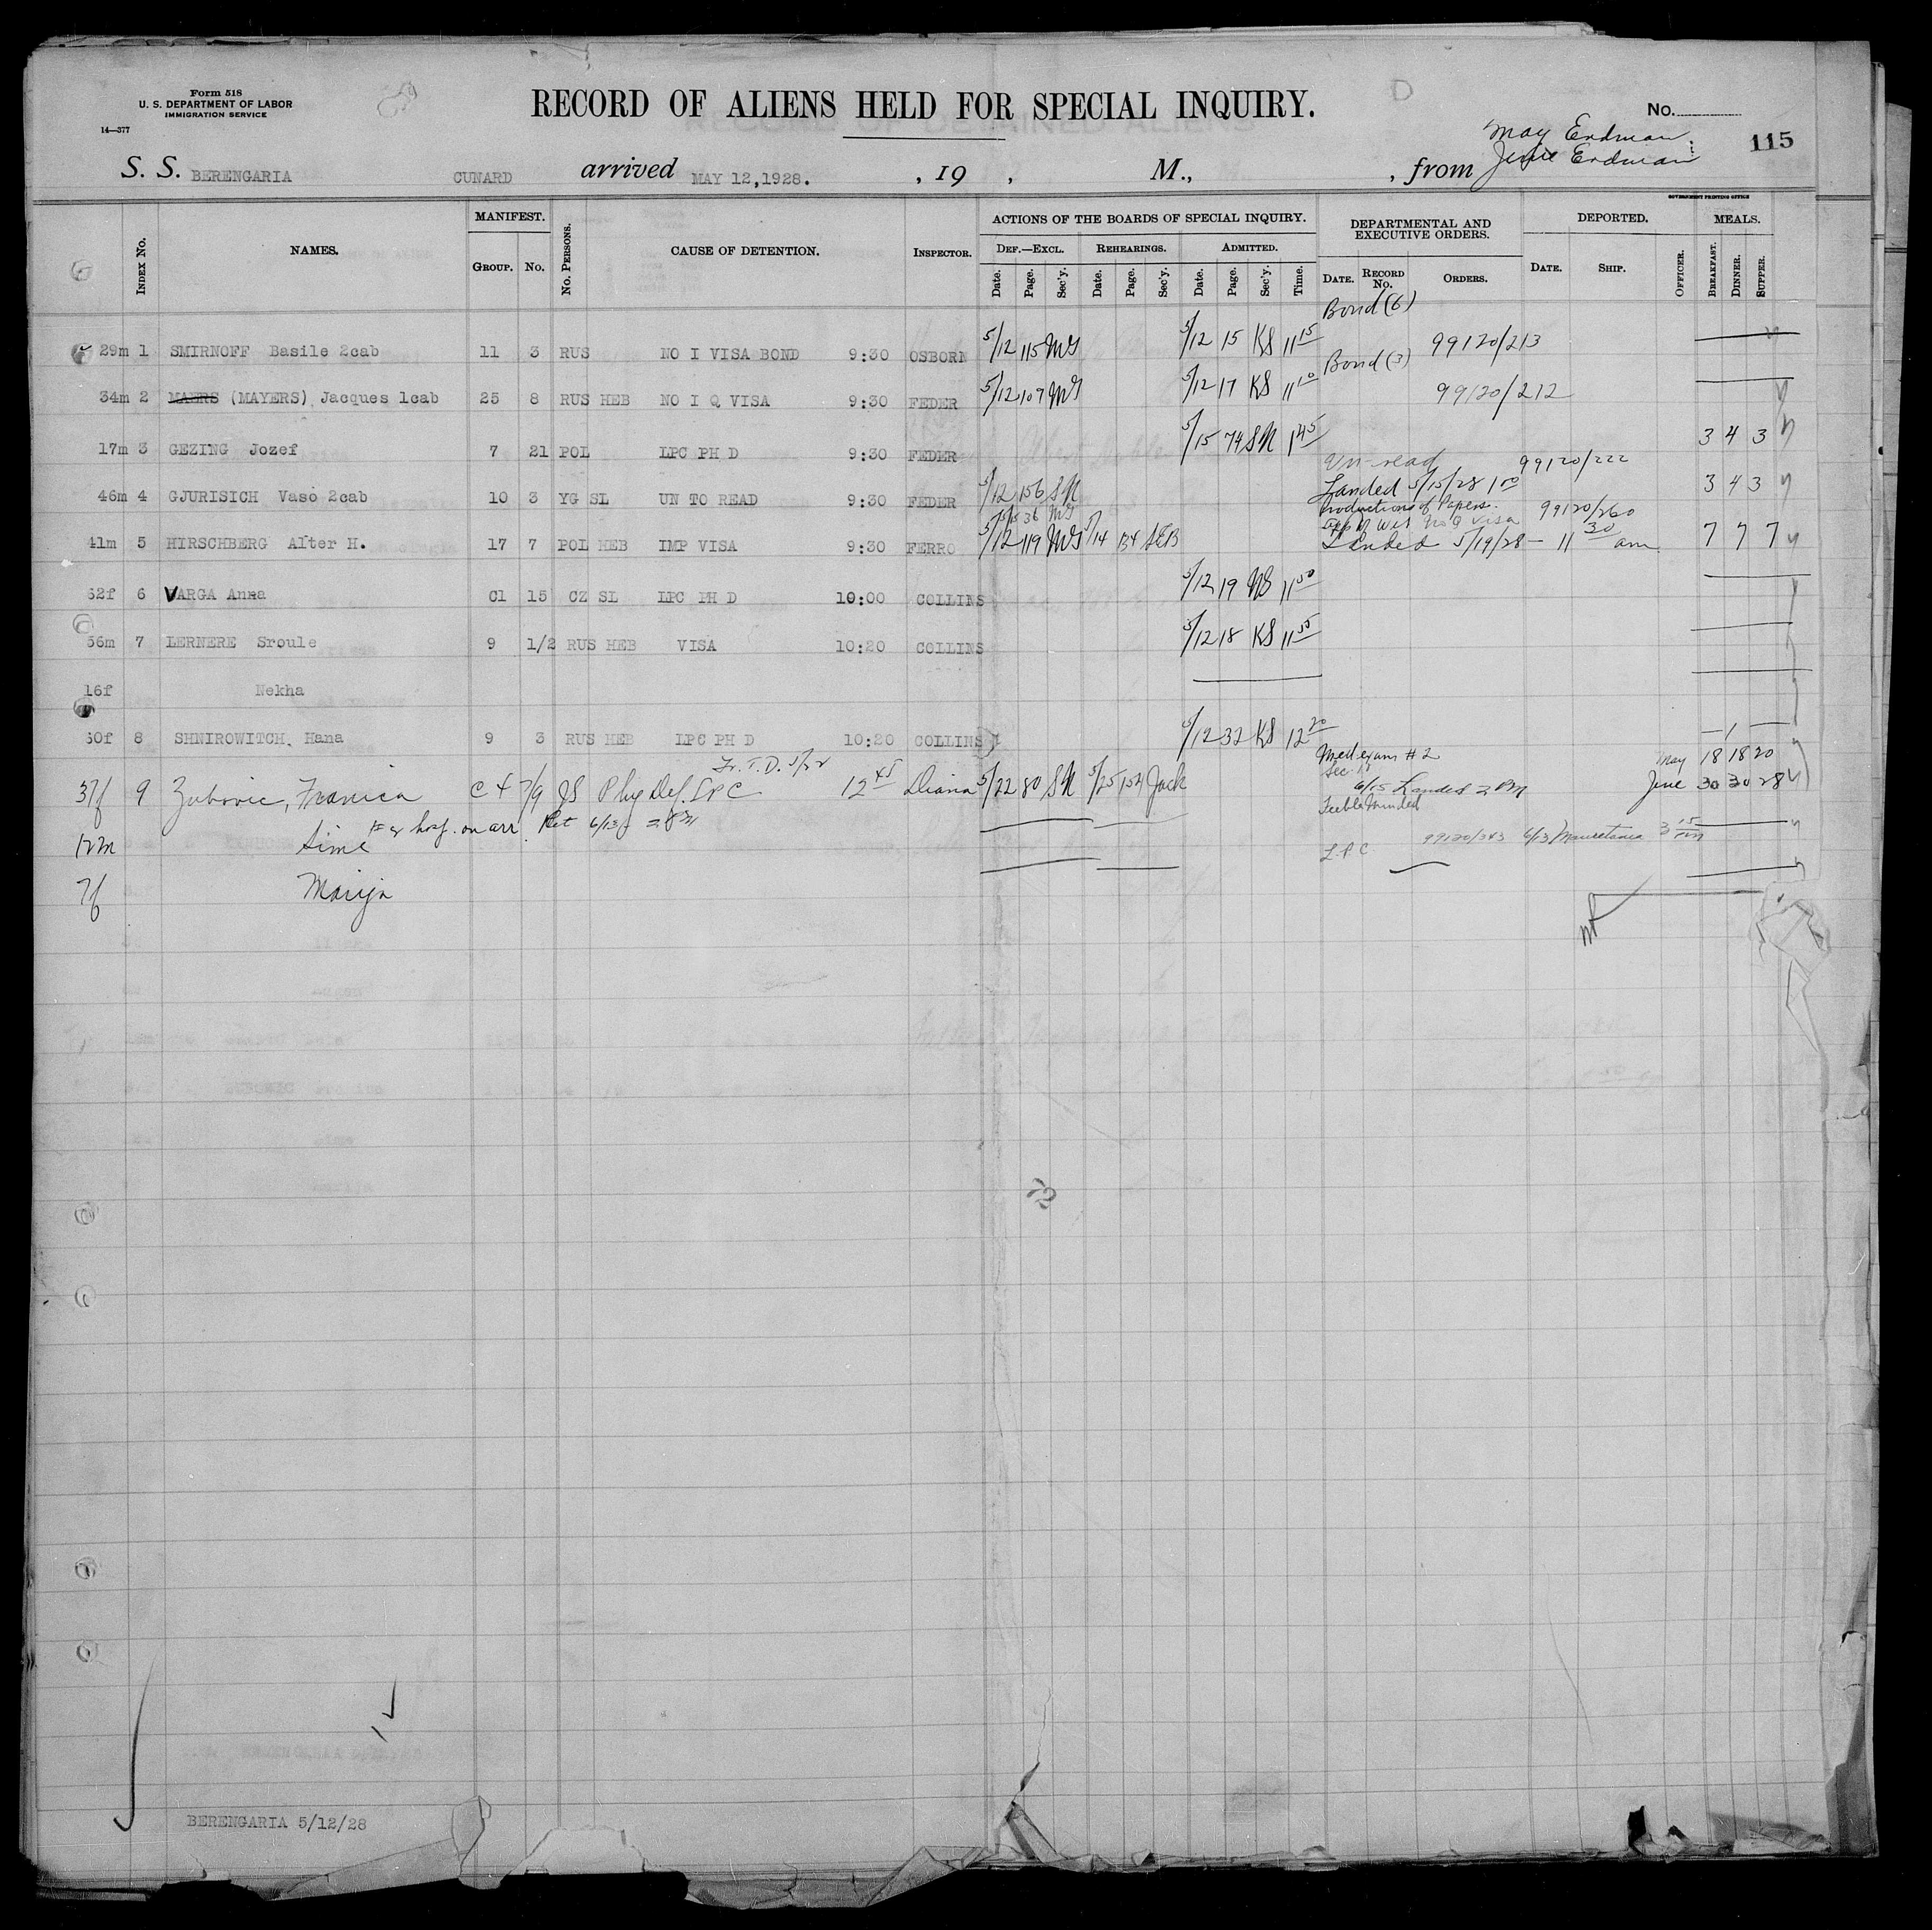 Form 518
U. S. DEPARTMENT OF LABOR
IMMIGRATION SERVICE
14—377
RECORD OF ALIENS HELD FOR SPECIAL INQUIRY.
No.
115
May Erdman
Erdman
S. S. BERENGARIA CUNARD arrived MAY 12,1928. , 19 , M., , from
GOVERNMENT PRINTING OFFICE
MANIFEST. ACTIONS OF THE BOARDS OF SPECIAL INQUIRY. DEPARTMENTAL AND EXECUTIVE ORDERS. DEPORTED. MEALS.
Index No. NAMES. GROUP. No. No. Persons. CAUSE OF DETENTION. INSPECTOR. DEF.—EXCL. REHEARINGS. ADMITTED.
Date. Page. Sec'y. Date. Page. Sec'y. Date. Page. Sec'y. Time. DATE. RECORD No. ORDERS. DATE. SHIP. OFFICER. BREAKFAST. DINNER. SUPPER.
Bond (6)
29m 1 SMIRNOFF Basile 2cab 11 3 RUS NO I VISA BOND 9:30 OSBORN 5/12 115 MG 5/12 15 KS 11 15 99120/213
Bond (3)
34m 2 MAERS (MAYERS) Jacques 1cab 25 8 RUS HEB NO I Q VISA 9:30 FEDER 5/12 107 MG 5/12 17 KS 11 10 99120/212
17m 3 GEZING Jozef 7 21 POL LPC PH D 9:30 FEDER 5/15 74 SN 1 45 3 4 3
Un-read 99120/222
46m 4 GJURISICH Vaso 2cab 10 3 YG SL UN TO READ 9:30 FEDER 5/12 156 SN Landed 5/15/28 1 00 3 4 3
5/15 36 MG Productions of Papers. 99120/260
App of Wit No Q Visa
41m 5 HIRSCHBERG Alter H. 17 7 POL HEB IMP VISA 9:30 FERRO 5/12 119 MG 5/14 134 SEB Landed 5/19/28 — 11 30 am 7 7 7
62f 6 VARGA Anna C1 15 CZ SL LPC PH D 10:00 COLLINS 5/12 19 NS 11 50
56m 7 LERNERE Sroule 9 1/2 RUS HEB VISA 10:20 COLLINS 5/12 18 KS 11 55
16f Nekha
60f 8 SHNIROWITCH, Hana 9 3 RUS HEB LPC PH D 10:20 COLLINS 5/12 32 KS 12 20 — 1 —
Fr. T. D. 5/22 Med exam # 2 May 18 18 20
37f 9 Zubovic, Franica C 4 7/9 JS Phy Def. LPC 12 45 Diana 5/22 80 SN 5/25 154 Jack 6/15 Landed 2 PM June 30 30 28
hosp. on arr Ret 6/13 Feeble Minded
12m Sime L.P.C 99120/343 6/13 Mauretania 3 15 PM
7f Marija
BERENGARIA 5/12/28